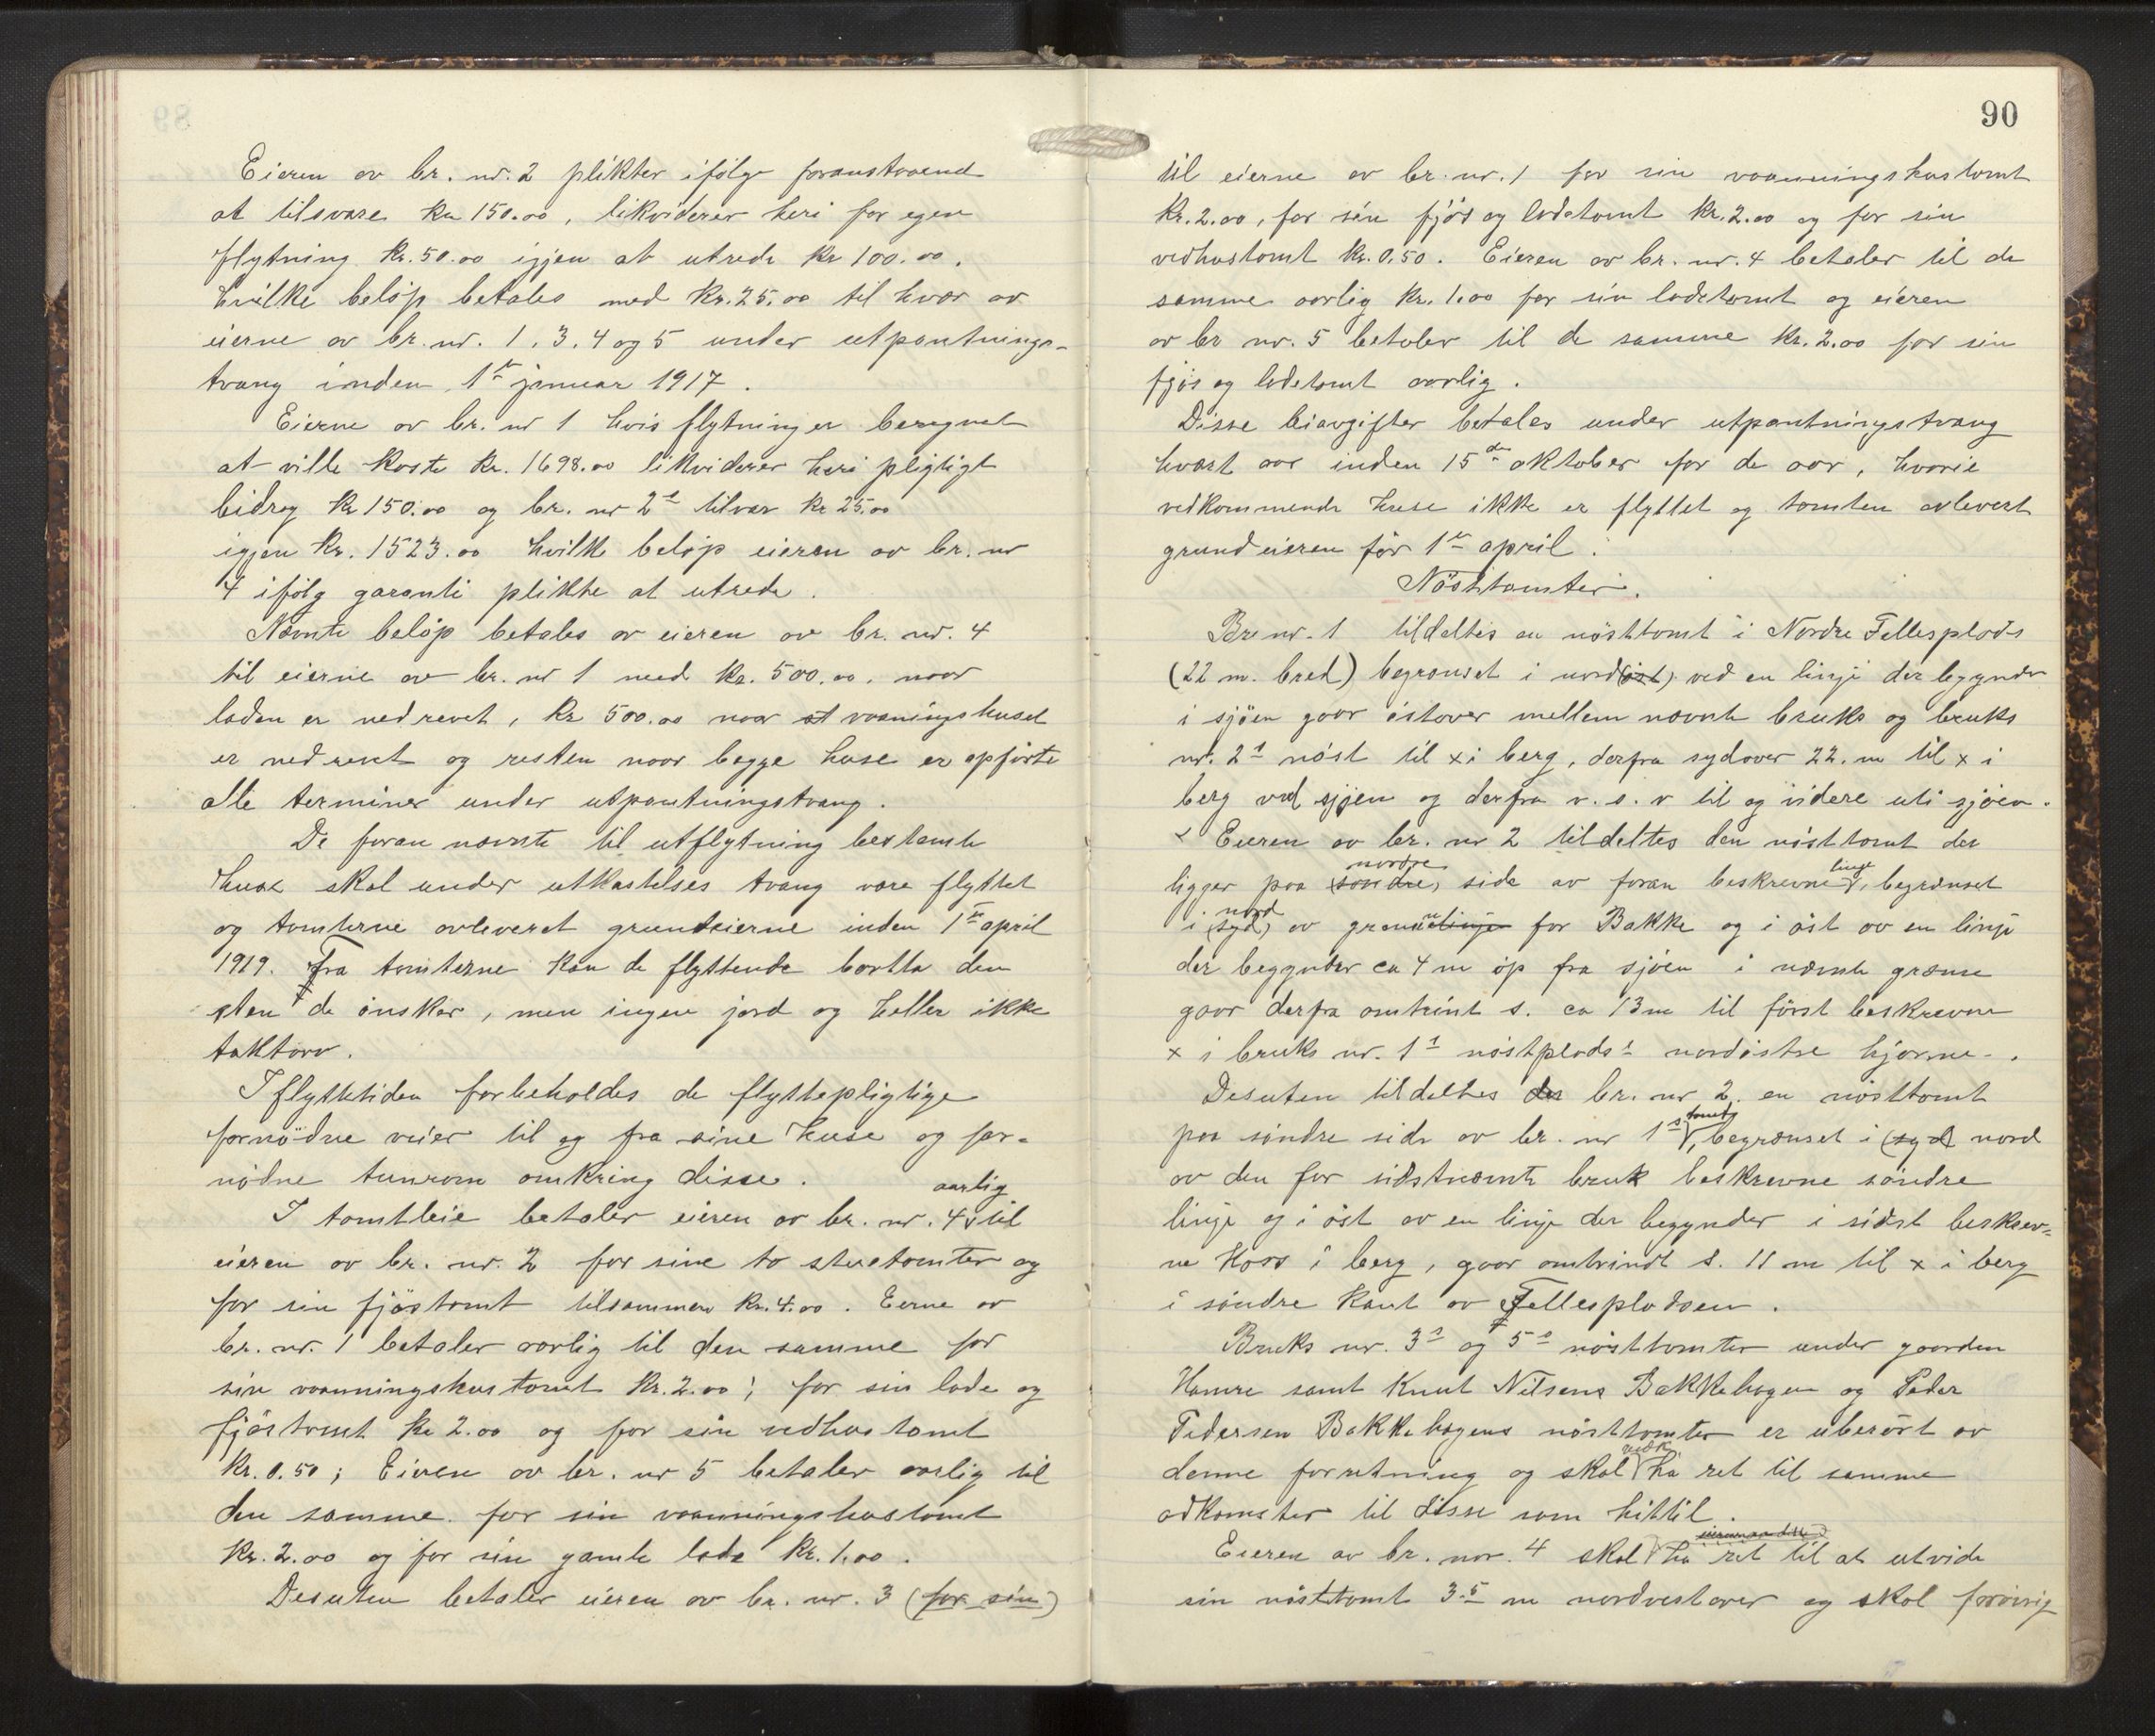 Eieren av br. nr. 2 plikter ifølge foranstaaend
at tilsvare kr 150.00, likviderer heri for egen
flytning kr. 50.00 igjen at utrede kr 100.00.
hvilke beløp betales med kr. 25.00 til hver av
eierne av br. nr. 1, 3, 4 og 5 under utpantnings-
tvang inden 1ste januar 1917.
Eierne av br. nr 1 hvis flytning er beregnet
at ville koste kr. 1698.00 likviderer heri pligtigt
bidrag kr 150.00 og br. nr 2s tilsvar kr 25.00
igjen kr. 1523.00 hvilke beløp eieren av br. nr
4 ifølg garanti plikte at utrede.
Nævnte beløp betales av eieren av br. nr. 4
til eierne av br. nr 1 med kr. 500.00, naar
laden er nedrevet, kr 500.00 naar at vaaningshuset
er nedrevet og resten naar begge huse er opførte
alle terminer under utpantningstvang.
De foran nævnte til utflytning bestemte
huse skal under utkastelses tvang være flyttet
og tomterne avleveret grundeierne inden 1ste april
1919. Fra tomterne kan de flyttende bortta den
sten de ønsker, men ingen jord og heller ikke
taktorv.
I flyttetiden forbeholdes de flyttepligtige
fornødne veier til og fra sine huse og for-
nødne tunrom omkring disse.
aarlig
I tomtleie betaler eieren av br. nr. 4 v til
eieren av br. nr. 2 for sine to stuetomter og
for sin fjøstomt tilsammen kr. 4.00. Eerne av
br. nr. 1 betaler aarlig til den samme for
sin vaaningshustomt kr. 2.00; for sin lade og
fjøstomt kr 2.00 og for sin vedhustomt
kr. 0.50; Eieren av br. nr 5 betaler aarlig til
den samme for sin vaaningshustomt
kr. 2.00 og for sin gamle lade kr. 1.00.
Desuten betaler eieren av br. nr. 3 (for sin)
90
til eierne av br. nr. 1 for sin vaanningshustomt
kr. 2.00, for sin fjøs og ladetomt kr. 2.00 og for sin
vedhustomt kr. 0.50. Eieren av br. nr. 4 betaler til de
samme aarlig kr. 1.00 for sin ladetomt og eieren
av br nr. 5 betaler til de samme kr. 2.00 for sin
fjøs og ladetomt aarlig.
Disse leiavgifter betales under utpantningstvang
hvert aar inden 15de oktober for de aar, hvorie
vedkommende huse ikke er flyttet og tomten avlevert
grundeieren før 1ste april.
Nøsttomter.
Br. nr. 1 tildeltes en nøsttomt i Nordre Fellesplads
(22 m. bred) begrænset i nord(øst) ved en linje der begynder
i sjøen gaar østover mellem nævnte bruks og bruks
nr. 2s nøst til x i berg, derfra sydover 22. m til x i
berg ved sjøen og derfra v. s. v til og videre uti sjøen.
Eieren av br. nr 2 tildeltes den nøsttomt der
nordre linje
ligger paa (søndre) side av foran beskrevne v, begrænset
nord
i (syd) av grænselinje for Bakke og i øst av en linje
der begynder ca 4 m op fra sjøen i nævnte grænse
gaar derfra omtrint s. ca 13 m til først beskrevne
x i bruks nr. 1s nøstplads's nordøstre hjørne.
Desuten tildeltes des br. nr 2. en nøsttomt
tomt
paa søndre side av br. nr 1s v, begrænset i (syd) nord
av den for sidstnævnte bruk beskrevne søndre
linje og i øst av en linje der begynder i sidst beskrev-
ne kors i berg, gaar omtrindt s. 11 m til x i berg
i søndre kant av Fellespladsen.
Bruks nr. 3s og 5s nøsttomter under gaarden
Hamre samt Knut Nilsens Bakkehagen og Peder
Pedersen Bakkehagens nøsttomter er uberørt av
vedk.
denne forretning og skal v ha ret til samme
adkomster til disse som hittil.
Eieren av br. nr. 4 skal ha ret til at utvide
sin nøsttomt 3.5 m nordvestover og skal forøvrig